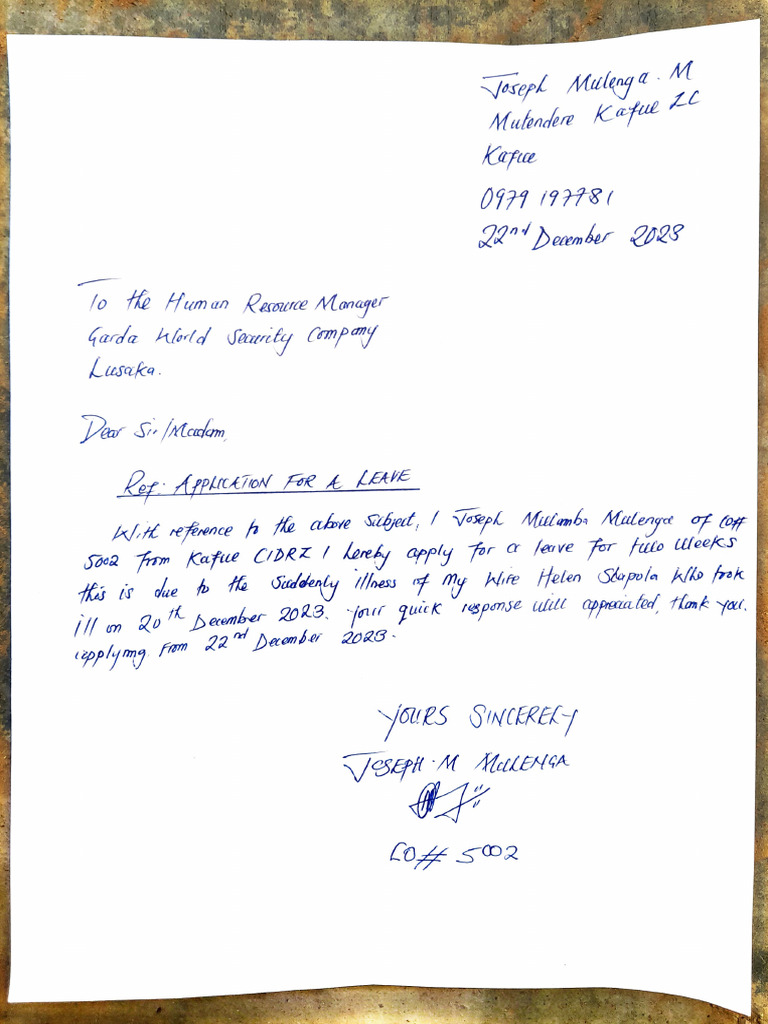 Joseph Mulenga. M
Mutendere Kafue ZC
Kafue
0979 197781
22nd December 2023
To the Human Resource Manager
Garda World Security Company
Lusaka.
Dear Sir/Madam,
Ref: APPLICATION FOR A LEAVE
With reference to the above subject, I Joseph Mulamba Mulenga of CO#
5002 from Kafue CIDRZ I hereby apply for a leave for two weeks
this is due to the suddenly illness of my wife Helen Shapola who took
ill on 20th December 2023. your quick response will appreciated, thank you.
applying from 22nd December 2023.
YOURS SINCERELY
JOSEPH.M MULENGA
CO# 5002